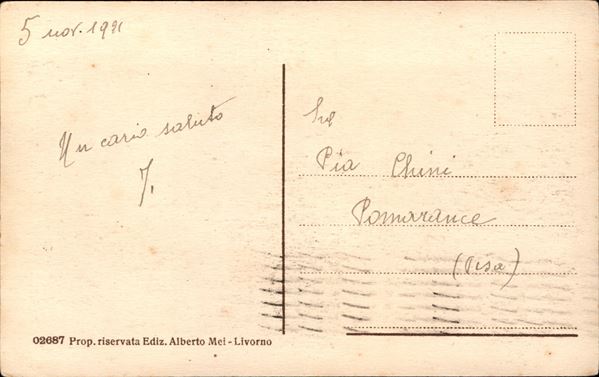 5 nov. 1921
Un caro saluto
J.
Pia Chini
Pomarance
(Pisa)
02687 Prop. riservata Ediz. Alberto Mei - Livorno